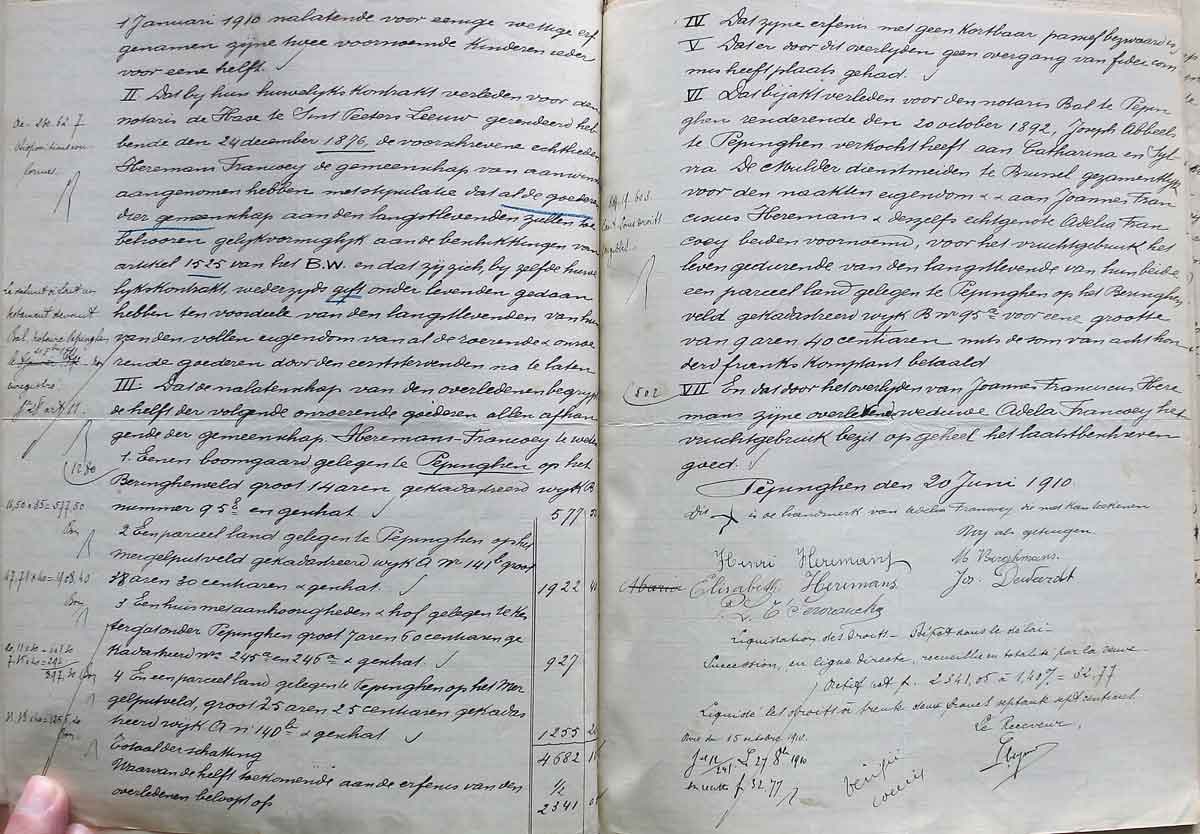 1 Januari 1910 nalatende voor eenige wettige erf
genamen zijne twee voornoemde kinderen ieder
voor eene helft.
II Dat bij hun huwelijks kontrakt verleden voor den
notaris de Hase te Sint Peeters Leeuw gerendeerd heb
bende den 24 december 1876, de voorschrevene echtlieden
Heremans Francoey de gemeenschap van aanwinst
aangenomen hebben met stipulatie dat al de goederen
dier gemeenschap aan den langstlevenden zullen toe
behooren gelijkvormiglijk aan de beschikkingen van
artikel 1525 van het B.W. en dat zij zich, bij zelfde huwe
lijkskontrakt, wederzijds gift onder levenden gedaan
hebben ten voordeele van den langstlevenden van hun
van den vollen eigendom van al de roerende & onroe
rende goederen door den eerststervenden na te laten
III. Dat de nalatenschap van den overledenen begrijpt
de helft der volgende onroerende goederen allen afhan
gende der gemeenschap Heremans-Francoey te weten
(1280)
1. Eenen boomgaard gelegen te Pepinghen op het
Beringhenveld groot 14 aren gekadastreerd wijk B
nummer 95 a en geschat. 577
16,50 x 35 = 577,50
2 Een parceel land gelegen te Pepinghen op het
Mergelputveld gekadastreerd wijk A nr 141 b groot
38 aren 30 centiaren & geschat. 1922 40
3 Een huis met aanhoorigheden & hof gelegen te Kes
tergat onder Pepinghen groot 7 aren 60 centiaren ge
kadastreerd nrs 245 a en 246 a & geschat. 927
4 Een parceel land gelegen te Pepinghen op het Mer
gelputveld, groot 25 aren 25 centiaren gekadas
treerd wijk A nr 140 b & geschat 1255 20
Totaal der schatting 4682
Waarvan de helft toekomende aan de erfenis van den 1/2
overledenen beloopt op 2341
IV Dat zijne erfenis met geen kostbaar passief bezwaard is
V Dat er door dit overlijden geen overgang van fidei com
mis heeft plaats gehad.
VI Dat bij akt verleden voor den notaris Bal te Pepin
ghen renderende den 20 october 1892, Joseph Abbeels
te Pepinghen verkocht heeft aan Catharina en Syl
via De Mulder dienstmeiden te Brussel gezamentlijk
voor den naakten eigendom & & aan Joannes Fran
ciscus Heremans & deszelfs echtgenote Adelia Fran
coey beiden voornoemd, voor het vruchtgebruik het
leven gedurende van den langstlevende van hun beide,
een parceel land gelegen te Pepinghen op het Beringhen
veld gekadastreerd wijk B nr 95 a voor eene grootte
van 9 aren 40 centiaren mits de som van acht hon
derd franks komptant betaald
(502)
VII En dat door het overlijden van Joannes Franciscus Here
mans zijne weduwe Adela Francoey het
vruchtgebruik bezit op geheel het laatstbeschreven
goed.
Pepinghen den 20 Juni 1910.
Dit is de handmerk van Adelia Francoey die niet kan teekenen
Wij als getuigen
Henri Heremans
M Berghmans
Maria Elisabeth Heremans
Liquidation des droits - Dépôt dans le délai
Succession, en ligne directe, recueillie en totalité par la veuve
Actif net f. 2341,05 à 1,40% = 32.77
Liquidé les droits à trente deux francs septante sept centimes
Le Receveur,
15 octobre 1910
L 27 8bre 1910
f 32.77